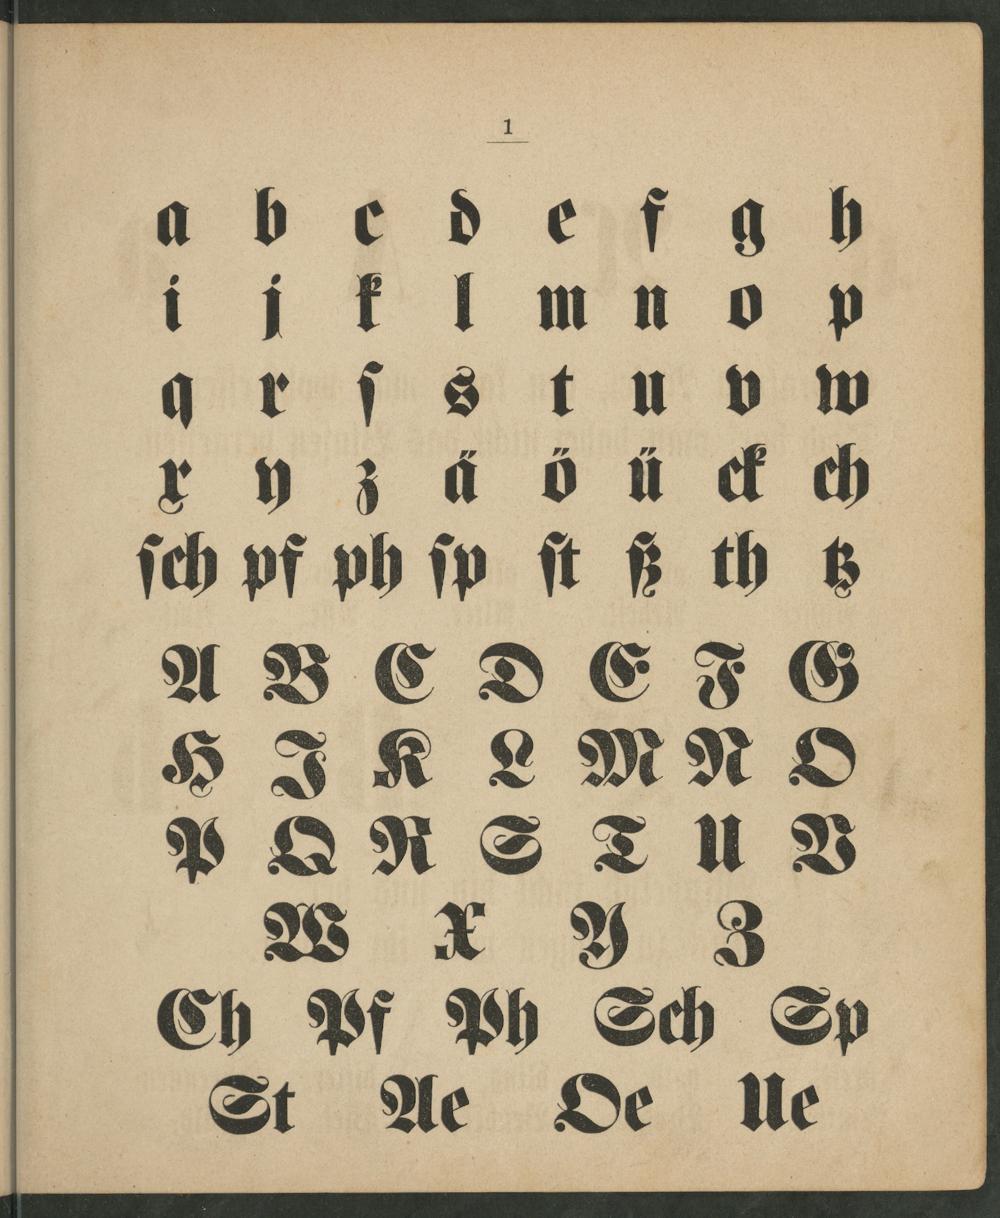 1
a b c d e f g h
i j k l m n o p
q r ſ s t u v w
x y z ä ö ü ck ch
ſch pf ph ſp ſt ß th tz
A B C D E F G
H I K L M N O
P Q R S T U V
W X Y Z
Ch Pf Ph Sch Sp
St Ae Oe Ue